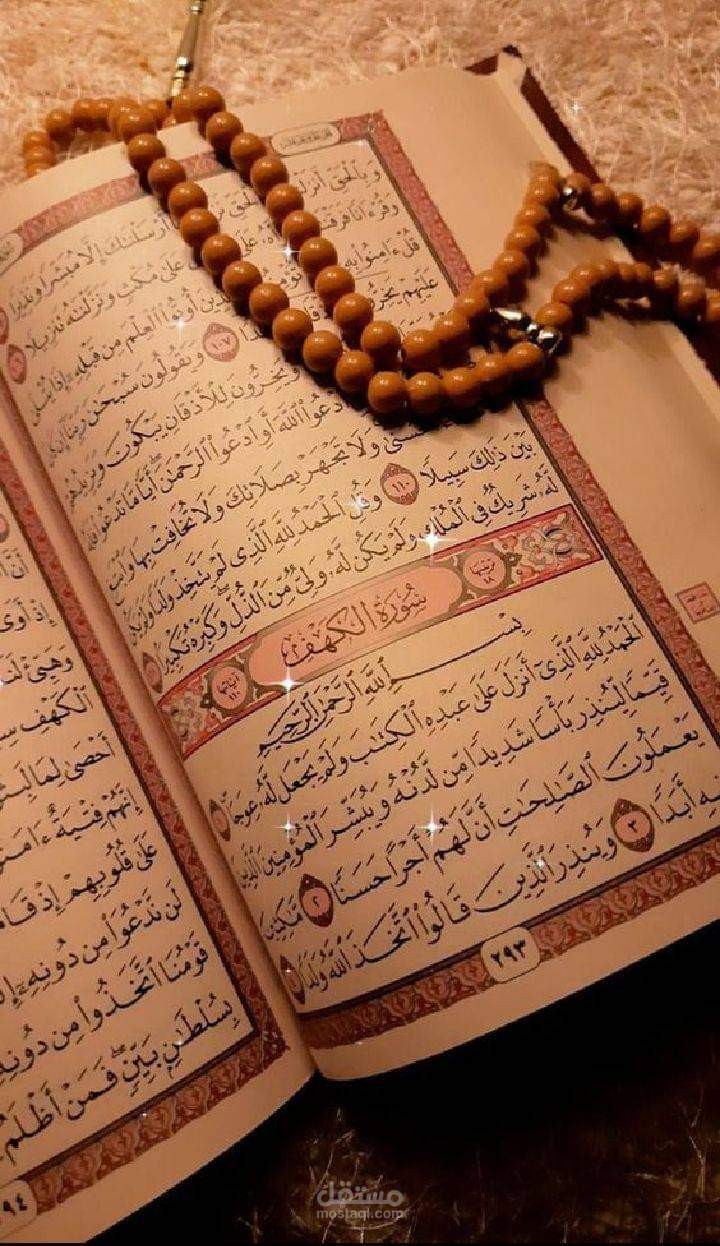 وَبِٱلْحَقِّ أَنزَلْ أَرْسَلْنَٰكَ إِلَّا مُبَشِّرًا وَنَذِيرًا
وَقُرْءَانًا فَرَقْنَٰ عَلَىٰ مُكْثٍ وَنَزَّلْنَٰهُ تَنزِيلًا
قُلْ ءَامِنُوا۟ بِهِۦٓ أُوتُوا۟ ٱلْعِلْمَ مِن قَبْلِهِۦٓ إِذَا يُتْلَىٰ
عَلَيْهِمْ يَخِرُّ ١٠٧ وَيَقُولُونَ سُبْحَٰنَ رَبِّنَآ إِن
يَخِرُّونَ لِلْأَذْقَانِ يَبْكُونَ وَيَزِيدُهُمْ
ٱدْعُوا۟ ٱللَّهَ أَوِ ٱدْعُوا۟ ٱلرَّحْمَٰنَ أَيًّا مَّا تَدْعُوا۟ فَلَهُ
وَلَا تَجْهَرْ بِصَلَاتِكَ وَلَا تُخَافِتْ بِهَا وَٱبْتَغِ
بَيْنَ ذَٰلِكَ سَبِيلًا ١١٠ وَقُلِ ٱلْحَمْدُ لِلَّهِ ٱلَّذِى لَمْ يَتَّخِذْ وَلَدًا وَلَمْ يَكُن
لَّهُۥ شَرِيكٌ فِى ٱلْمُلْكِ وَلَمْ يَكُن لَّهُۥ وَلِىٌّ مِّنَ ٱلذُّلِّ وَكَبِّرْهُ تَكْبِيرًۢا
سُورَةُ الكَهْفِ
بِسْمِ ٱللَّهِ ٱلرَّحْمَٰنِ ٱلرَّحِيمِ
ٱلْحَمْدُ لِلَّهِ ٱلَّذِىٓ أَنزَلَ عَلَىٰ عَبْدِهِ ٱلْكِتَٰبَ وَلَمْ يَجْعَل لَّهُۥ عِوَجَا
قَيِّمًا لِّيُنذِرَ بَأْسًا شَدِيدًا مِّن لَّدُنْهُ وَيُبَشِّرَ ٱلْمُؤْمِنِينَ ٱلَّذِينَ
يَعْمَلُونَ ٱلصَّٰلِحَٰتِ أَنَّ لَهُمْ أَجْرًا حَسَنًا ٢ مَّٰكِثِينَ
فِيهِ أَبَدًا ٣ وَيُنذِرَ ٱلَّذِينَ قَالُوا۟ ٱتَّخَذَ ٱللَّهُ وَلَدًا
٢٩٣
إِذْ أَوَى
وَهَيِّئْ
ٱلْكَهْفِ
أَحْصَىٰ لِمَا
إِنَّهُمْ فِتْيَةٌ ءَامَنُ
عَلَىٰ قُلُوبِهِمْ إِذْ قَامُ
لَن نَّدْعُوَا۟ مِن دُونِهِۦٓ
قَوْمُنَا ٱتَّخَذُوا۟ مِن دُونِهِۦٓ
بِسُلْطَٰنٍۭ بَيِّنٍ ۖ فَمَنْ أَظْلَمُ
مستقل
mostaql.com